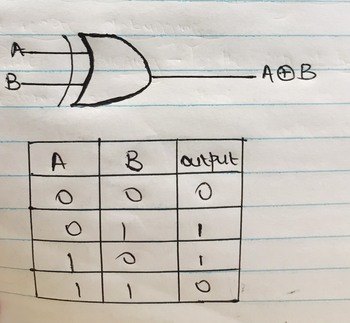 A
B
A⊕B
A B output
0 0 0
0 1 1
1 0 1
1 1 0